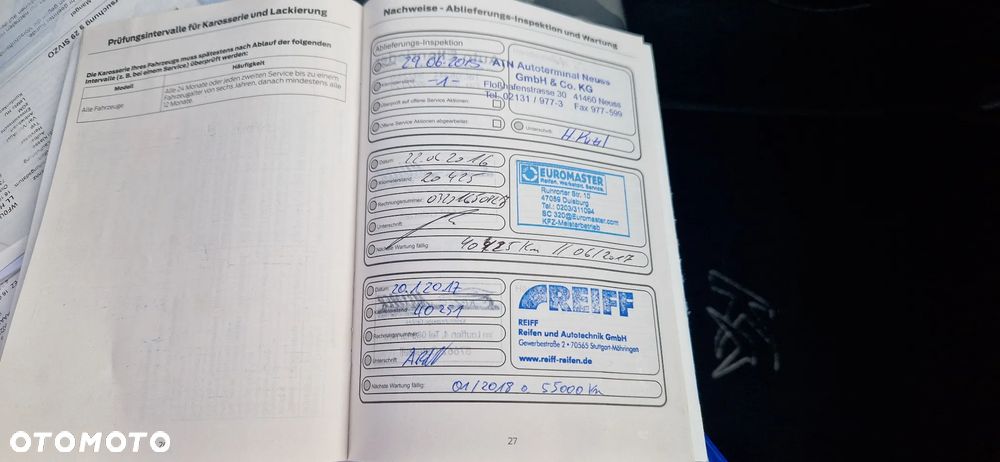 Prüfungsintervalle für Karosserie und Lackierung
Die Karosserie Ihres Fahrzeugs muss spätestens nach Ablauf der folgenden
Intervalle (z. B. bei einem Service) überprüft werden:
Modell Häufigkeit
Alle Fahrzeuge
Alle 24 Monate oder jeden zweiten Service bis zu einem
Fahrzeugalter von sechs Jahren, danach mindestens alle
12 Monate.
Nachweise - Ablieferungs-Inspektion und Wartung
Ablieferungs-Inspektion
29.06.2015
Kilometerstand: -1-
Überprüft auf offene Service Aktionen
Offene Service Aktionen abgearbeitet
ATN Autoterminal Neuss
GmbH & Co. KG
Floßhafenstrasse 30 41460 Neuss
Tel. 02131 / 977-3 Fax 977-599
Unterschrift:
Datum: 22.06.2016
Kilometerstand: 20425
Rechnungsnummer:
Unterschrift:
Nächste Wartung fällig: 40425 Km // 06/2017
EUROMASTER
Reifen. Werkstatt. Service.
Ruhrorter Str. 10
47059 Duisburg
Tel.: 0203/311094
SC 320@Euromaster.com
KFZ-Meisterbetrieb
Datum: 20.1.2017
Kilometerstand: 40251
Rechnungsnummer:
Unterschrift:
Nächste Wartung fällig: 01/2018 o. 55000 Km
REIFF
REIFF
Reifen und Autotechnik GmbH
Gewerbestraße 2 • 70565 Stuttgart-Möhringen
www.reiff-reifen.de
27
OTOMOTO